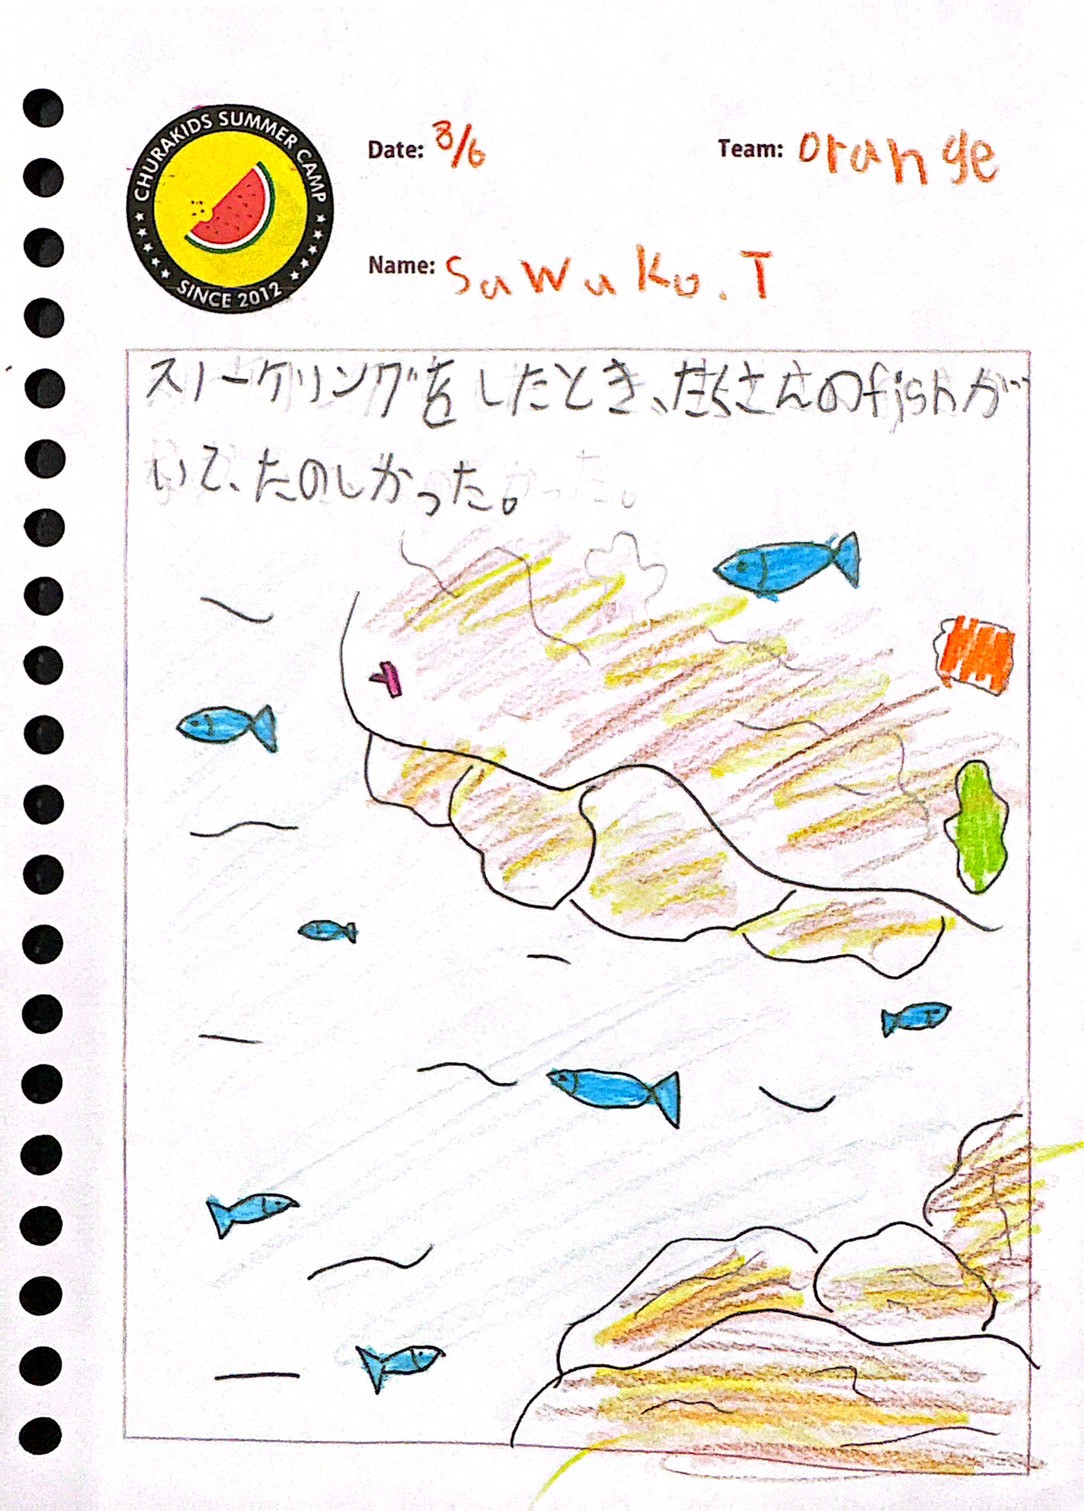 CHURAKIDS SUMMER CAMP
SINCE 2012
Date: 8/6
Team: orange
Name: Sawako.T
スノーケリングをしたとき、たくさんのfishが
いて、たのしかった。